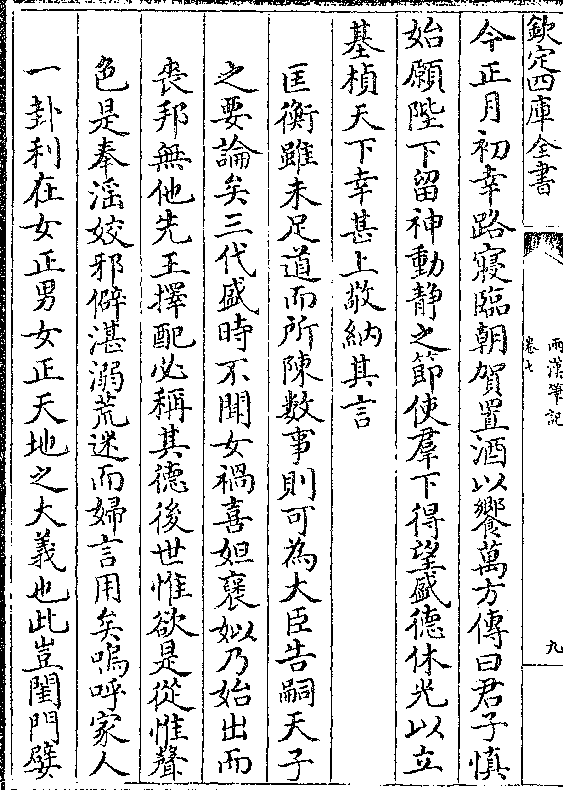 欽定四庫全書
兩漢筆記
卷七
九
今正月初幸路寢臨朝賀置酒以饗萬方傳曰君子慎
始願陛下留神動靜之節使羣下得望盛德休光以立
基楨天下幸甚上敬納其言
匡衡雖未足道而所陳數事則可為大臣告嗣天子
之要論矣三代盛時不聞女禍喜妲褒姒乃始出而
喪邦無他先王擇配必稱其德後世惟欲是從惟聲
色是奉滛姣邪僻湛溺荒迷而婦言用矣嗚呼家人
一卦利在女正男女正天地之大義也此豈閨門嬖